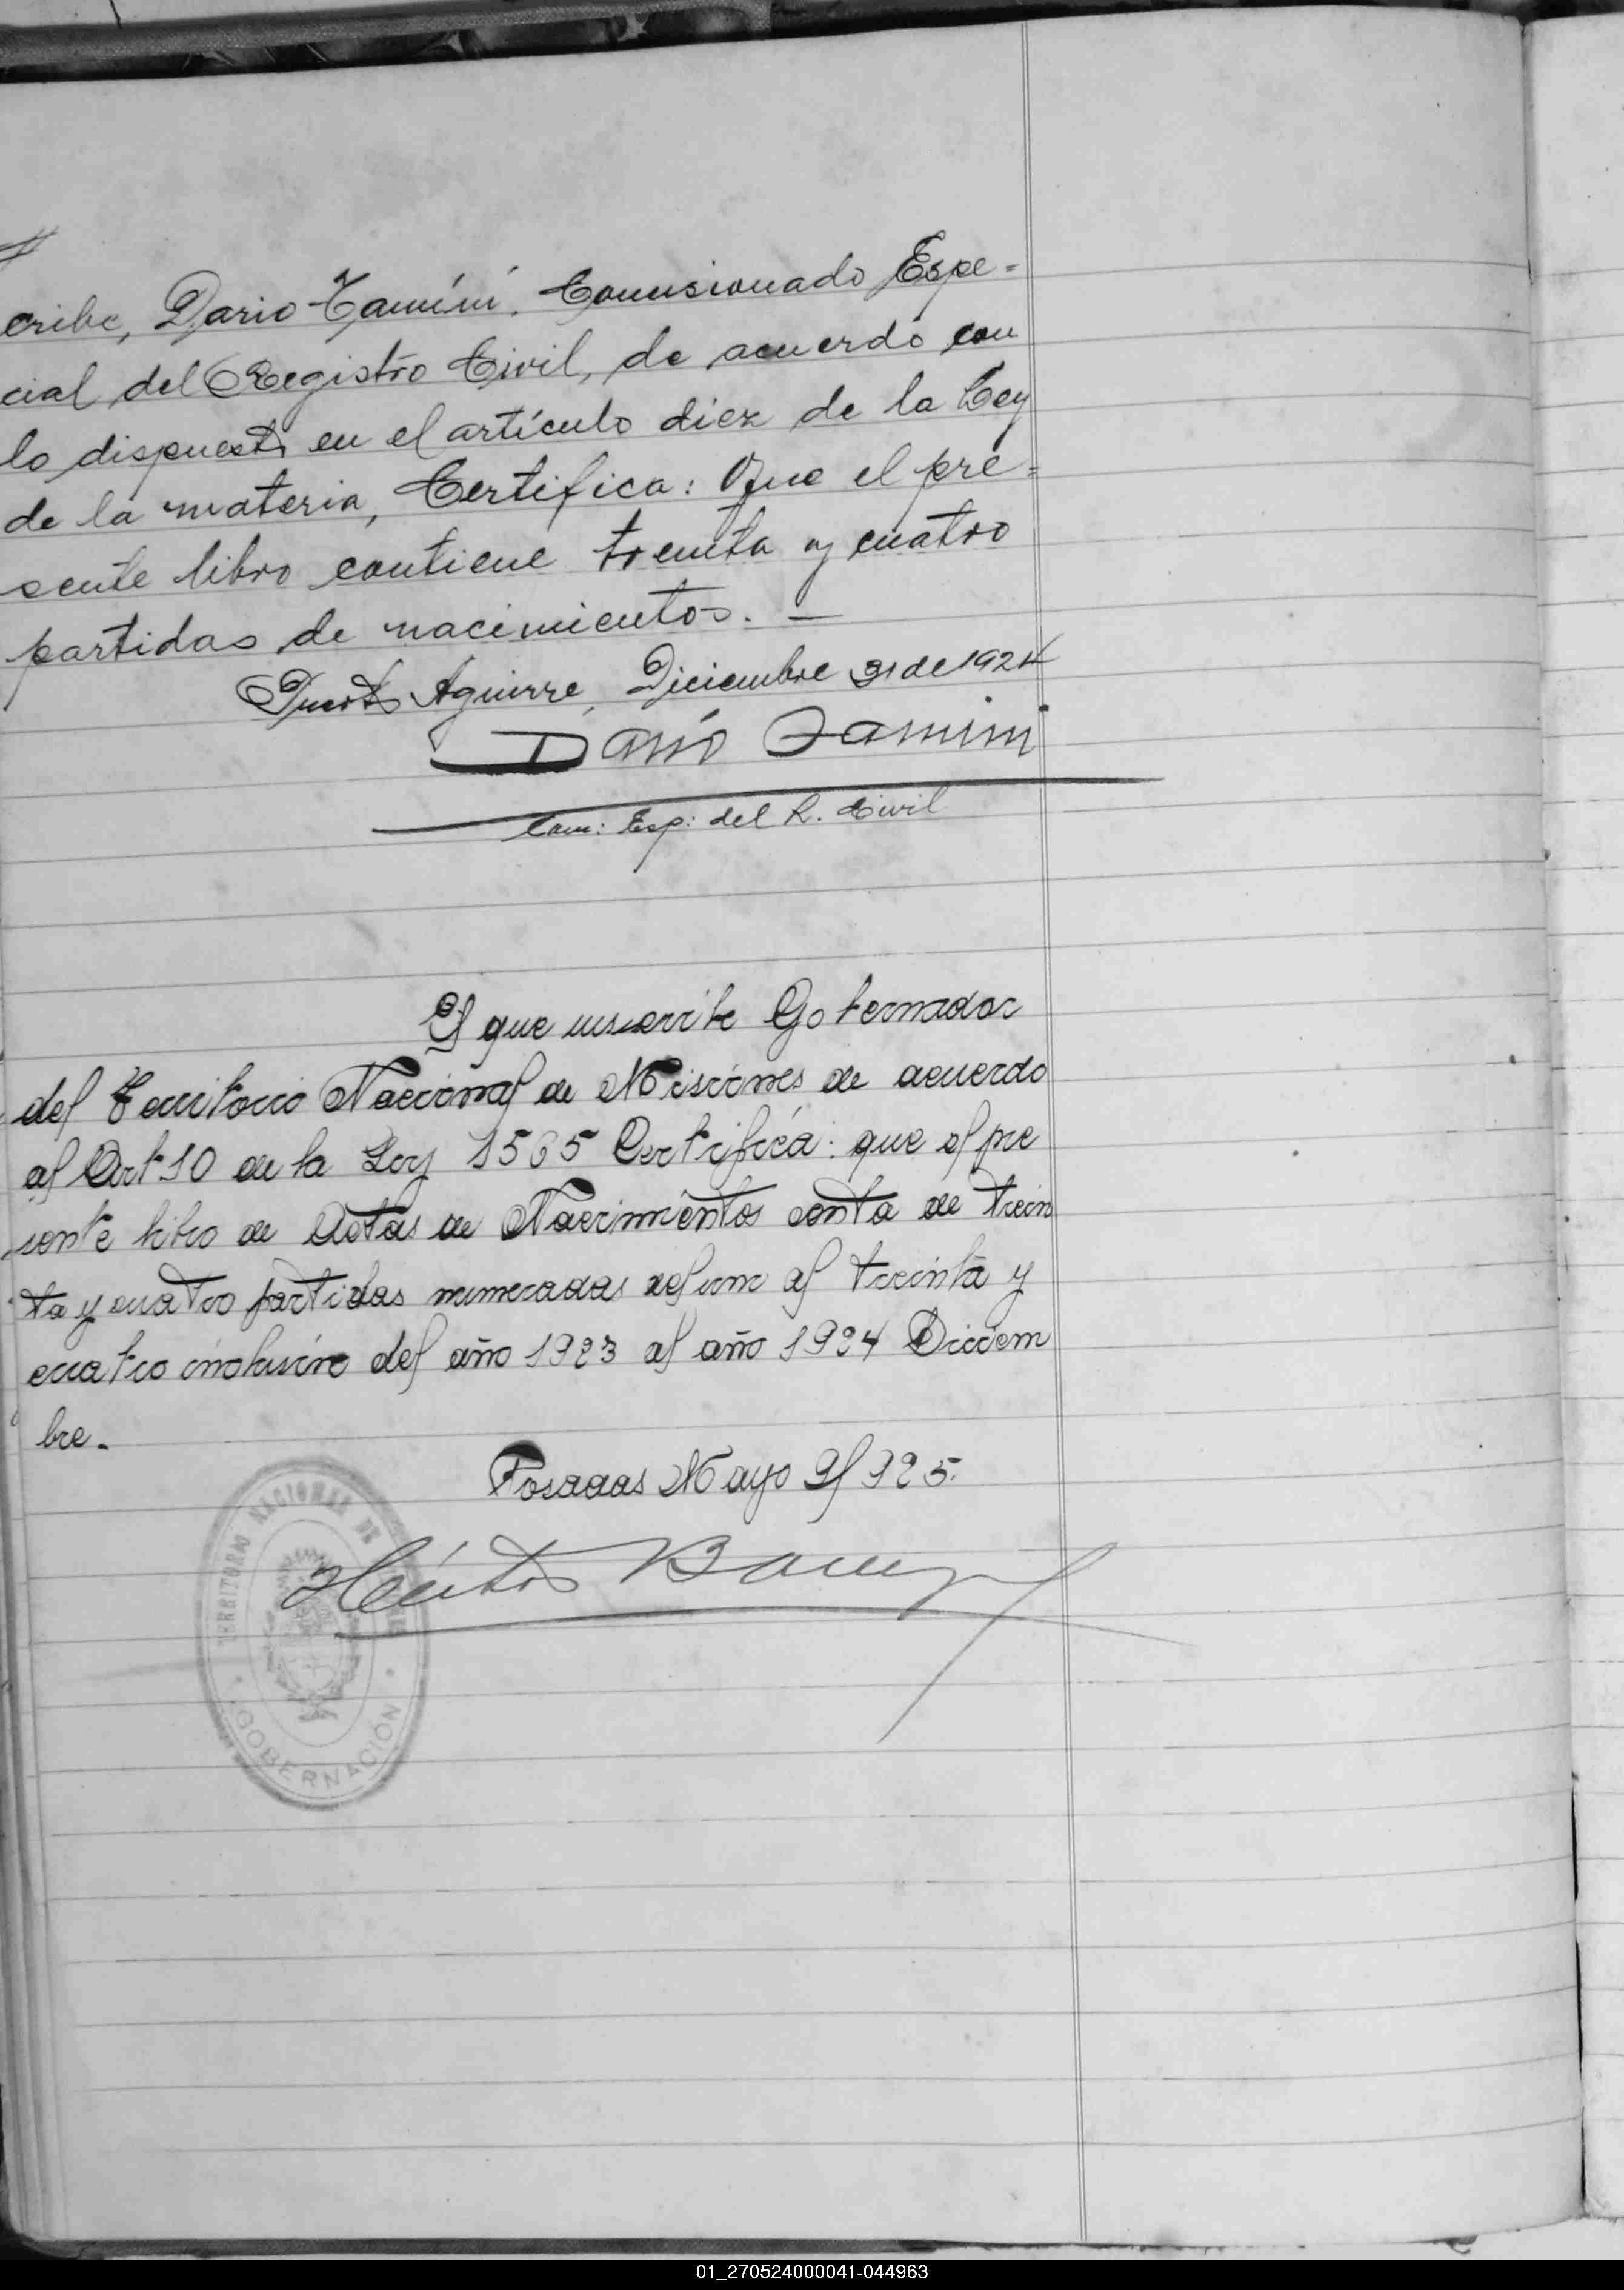 cribe, Dario Tamini. Comisionado Espe=
cial del Registro Civil, de acuerdo con
lo dispuesto en el artículo diez de la Ley
de la materia, Certifica: Que el pre=
sente libro contiene treinta y cuatro
partidas de nacimientos. —
Puerto Aguirre, Diciembre 31 de 1924
Dario Tamini
Com: Esp: del R. Civil
El que suscribe Gobernador
del Territorio Nacional de Misiones de acuerdo
al Art 10 de la Ley 1565 Certifica: que el pre
sente libro de Actas de Nacimientos consta de trein
ta y cuatro partidas numeradas del uno al treinta y
cuatro inclusive del año 1923 al año 1924 Diciem
bre.
Posadas Mayo 925.
Héctor
TERRITORIO NACIONAL DE MISIONES
GOBERNACIÓN
01_270524000041-044963